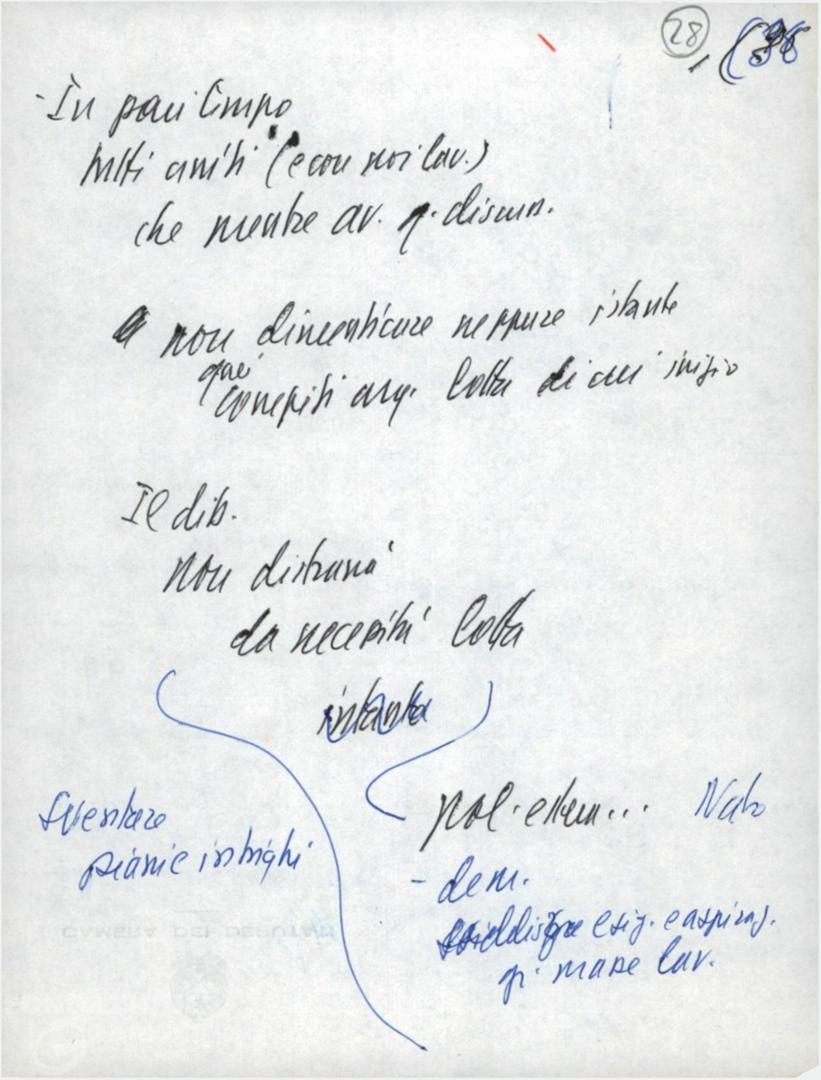 28
- In pari tempo
tutti uniti (e con noi lav.)
che mentre av. q. discuss.
a non dimenticare neppure istante
quei
compiti org. lotta di cui inizio
Il dib.
non distrarrà
da necessità lotta
intanto
sventare
piani e intrighi
pol. estera... Nato
- dem.
soddisfare esig. e aspiraz.
gr. masse lav.
CAMERA DEI DEPUTATI